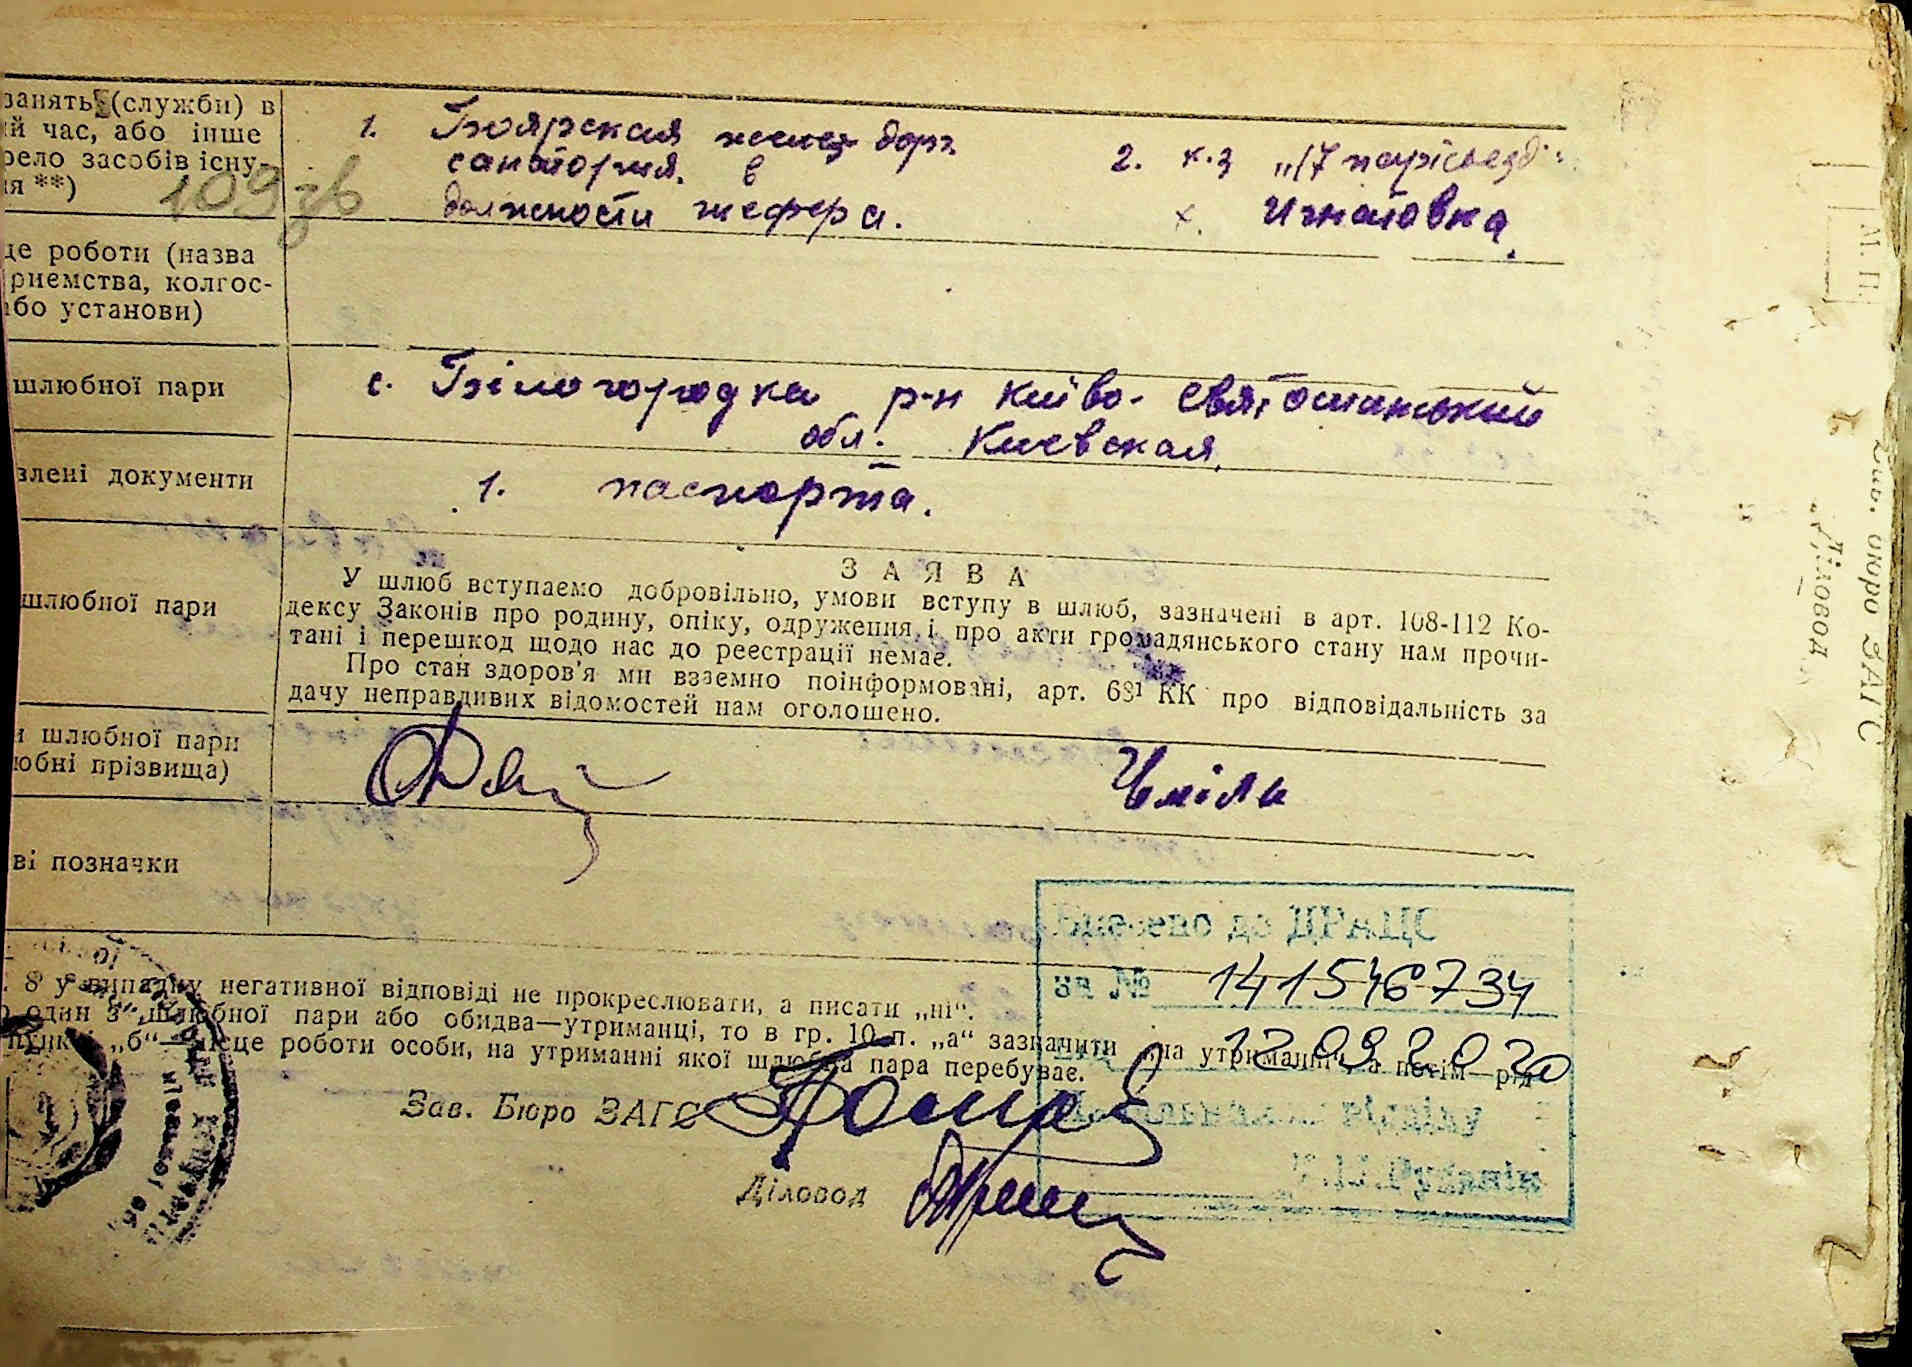 занять (служби) в
й час, або інше
рело засобів існу-
я **)
109 зв
1. Боярская
санатория. в
должности шофера.
2. к.з „17 партсъезд"
х. Игнатовка.
це роботи (назва
приємства, колгос-
або установи)
шлюбної пари
с. Білогородка р-н Київо-Святошинський
обл. Киевская,
влені документи
1. паспорта.
шлюбної пари
ЗАЯВА
У шлюб вступаємо добровільно, умови вступу в шлюб, зазначені в арт. 108-112 Ко-
дексу Законів про родину, опіку, одруження, і про акти громадянського стану нам прочи-
тані і перешкод щодо нас до реєстрації немає.
Про стан здоров'я ми взаємно поінформовані, арт. 68¹ КК про відповідальність за
дачу неправдивих відомостей нам оголошено.
и шлюбної пари
юбні прізвища)
Чміль
ві позначки
Внесено до ДРАЦС
за № 141546734
12 09 2020
. 8 у випадку негативної відповіді не прокреслювати, а писати „ні".
один з шлюбної пари або обидва—утриманці, то в гр. 10 п. „а" зазначити „на утриманні", а потім—рід
пункті „б"—місце роботи особи, на утриманні якої шлюбна пара перебуває.
Зав. Бюро ЗАГС
Діловод
М. П.
бюро ЗАГС
Діловод